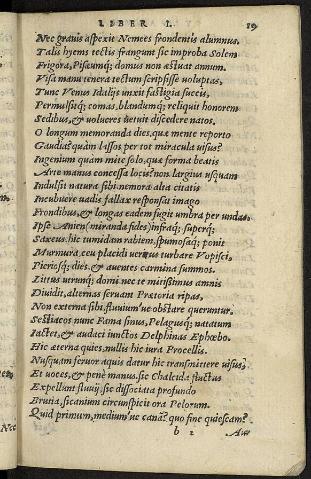 LIBER I. 19
Nec gravis aspexit Nemees frondentis alumnus.
Talis hyems tectis frangunt sic improba Solem
Frigora, Pisæumq; domus non æstuat annum.
Visa manu tenera tectum scripsisse voluptas,
Tunc Venus Idalijs unxit fastigia succis,
Permulsitq; comas, blandumq; reliquit honorem
Sedibus, & volucres vetuit discedere natos.
O longum memoranda dies, quæ mente reporto
Gaudia? quàm lassos per tot miracula visus?
Ingenium quàm mite solo, quæ forma beatis
Arte manus concessa locis? non largius usquam
Indulsit natura sibi. nemora alta citatis
Incubuere vadis fallax responsat imago
Frondibus, & longas eadem fugit umbra per undas.
Ipse Anien (miranda fides) infraq; superq;
Saxeus. hic tumidam rabiem, spumosaq; ponit
Murmura, ceu placidi veritus turbare Vopisci,
Pieriosq; dies, & auentes carmina somnos.
Littus utrunq; domi nec te mitissimus amnis
Diuidit, alternas seruant Prætoria ripas,
Non externa sibi, fluuium'ue obstare queruntur.
Sestiacos nunc Fama sinus, Pelagusq; natatum
Iactet, & audaci iunctos Delphinas Ephœbo.
Hic æterna quies, nullis hic iura Procellis.
Nusquam feruor aquis datur hic transmittere visus,
Et voces, & penè manus. sic Chalcida fluctus
Expellunt fluuij, sic dissociata profundo
Brutia, sicanium circunspicit ora Pelorum.
Quid primum, medium'ue canã? quo fine quiescam?
b 2 Au
Nec